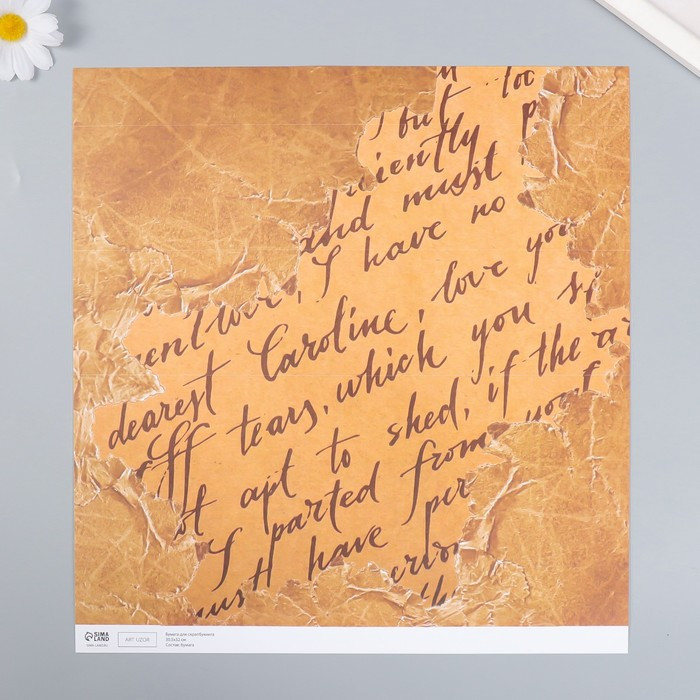 but
iently
and must
I have no
love,
dearest Caroline, love you
ff tears, which you s
t apt to shed, if the
I parted from your
ust have per
SIMA LAND
ART UZOR
Бумага для скрапбукинга
30.5х32 см
Состав: бумага